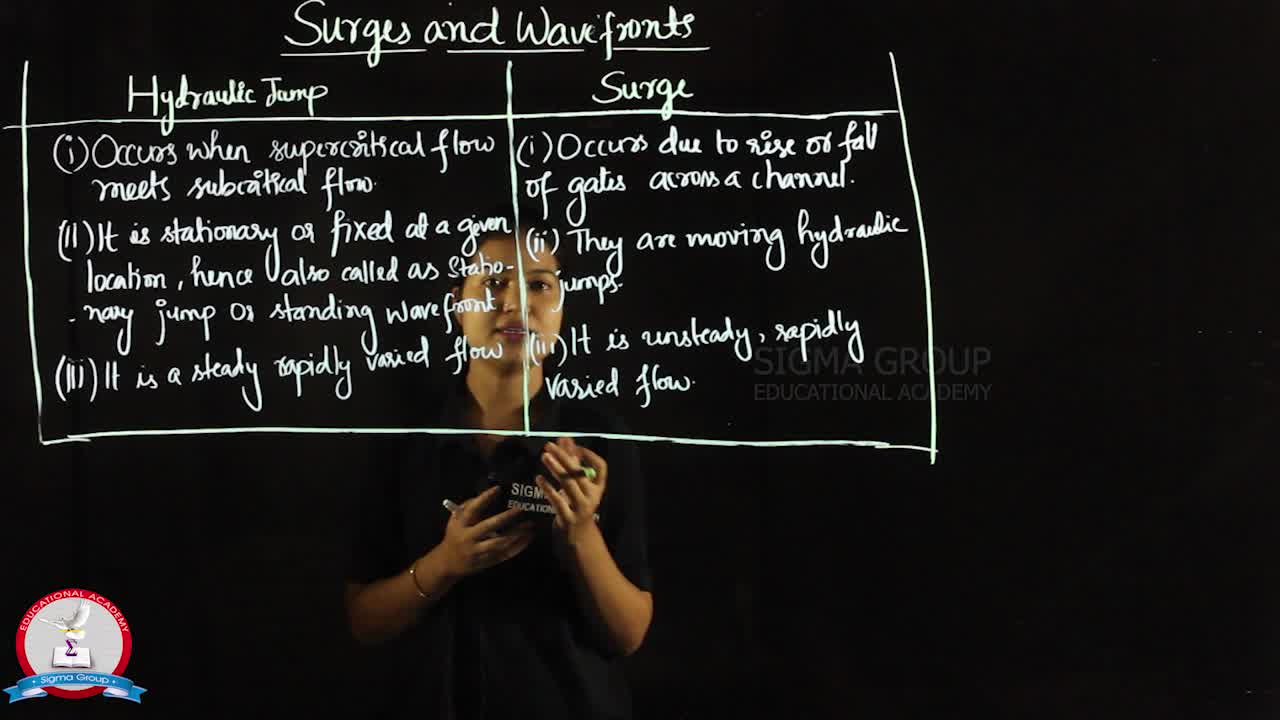 Surges and Wavefronts
Hydraulic Jump
(i) Occurs when supercritical flow
meets subcritical flow.
(ii) It is stationary or fixed at a given
location, hence also called as statio-
-nary jump or standing wavefront.
(iii) It is a steady rapidly varied flow
Surge
(i) Occurs due to rise or fall
of gates across a channel.
(ii) They are moving hydraulic
jumps.
(iii) It is unsteady, rapidly
varied flow.
SIGMA GROUP
EDUCATIONAL ACADEMY
SIGM
EDUCATIONAL
EDUCATIONAL ACADEMY
Σ
Sigma Group